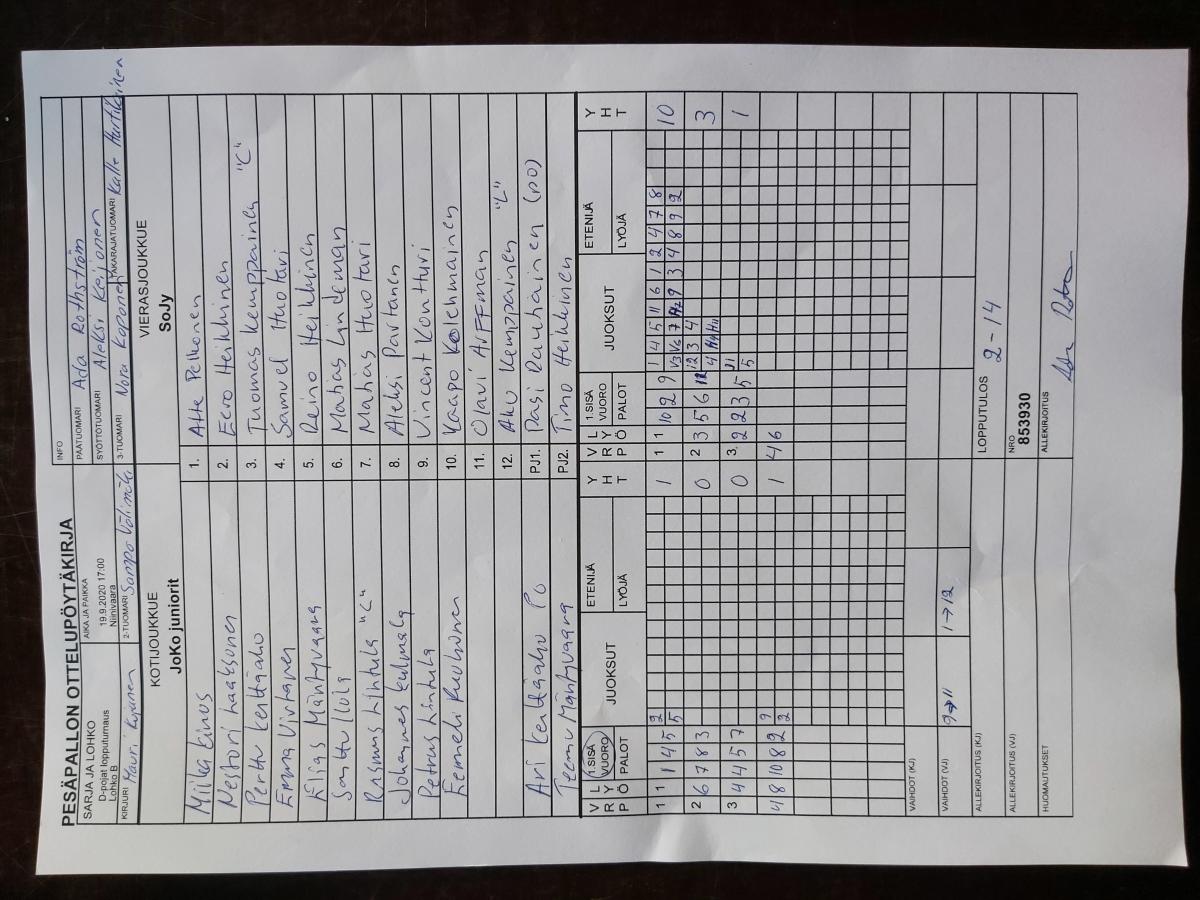 PESÄPALLON OTTELUPÖYTÄKIRJA
SARJA JA LOHKO
D-pojat lopputurnaus
Lohko B
AIKA JA PAIKKA
19.9.2020 17:00
Niinivaara
INFO
PÄÄTUOMARI Ada Rothström
SYÖTTÖTUOMARI Aleksi Keijonen
KIRJURI Mauri
2-TUOMARI Sampo Välimäki
3-TUOMARI Nora Koponen
TAKARAJATUOMARI Kalle Hartikainen
KOTIJOUKKUE
JoKo juniorit
VIERASJOUKKUE
SoJy
Miika Kinos 1. Atte Pelkonen
Nestori Laaksonen 2. Eero Heikkinen
Perttu Kenttäaho 3. Tuomas Kemppainen "C"
Emma Virtanen 4. Samuel Huotari
Elias Mäntyvaara 5. Reino Heikkinen
Santtu Ilola 6. Matias Lindeman
Rasmus Lintula "C" 7. Mathias Huotari
Johannes Kulmala 8. Aleksi Partanen
Petrus Lintula 9. Vincent Kontturi
Eemeli Ruuhonen 10. Kaapo Kolehmainen
11. Olavi Arffman
12. Aku Kemppainen "L"
Ari Kenttäaho PO PJ1. Pasi Pauhiainen (PO)
Teemu Mäntyvaara PJ2. Timo Heikkinen
V R P L Y Ö 1.SISÄ VUORO PALOT JUOKSUT ETENIJÄ LYÖJÄ Y H T V R P L Y Ö 1.SISÄ VUORO PALOT JUOKSUT ETENIJÄ LYÖJÄ Y H T
1 1 1 4 5 2 1 1 1 10 2 9 1 4 5 11 6 1 2 4 7 8 10
5 V3 V6 7 9 3 4 8 9 2
2 6 7 8 3 0 2 3 5 6 12 12 3 4 3
3 4 4 5 7 0 3 2 2 3 5 11 1
5
4 8 10 8 2 9 1 4 6
2
VAIHDOT (KJ)
VAIHDOT (VJ) 9→11 1→12
ALLEKIRJOITUS (KJ)
LOPPUTULOS 2-14
ALLEKIRJOITUS (VJ)
NRO
853930
HUOMAUTUKSET
ALLEKIRJOITUS